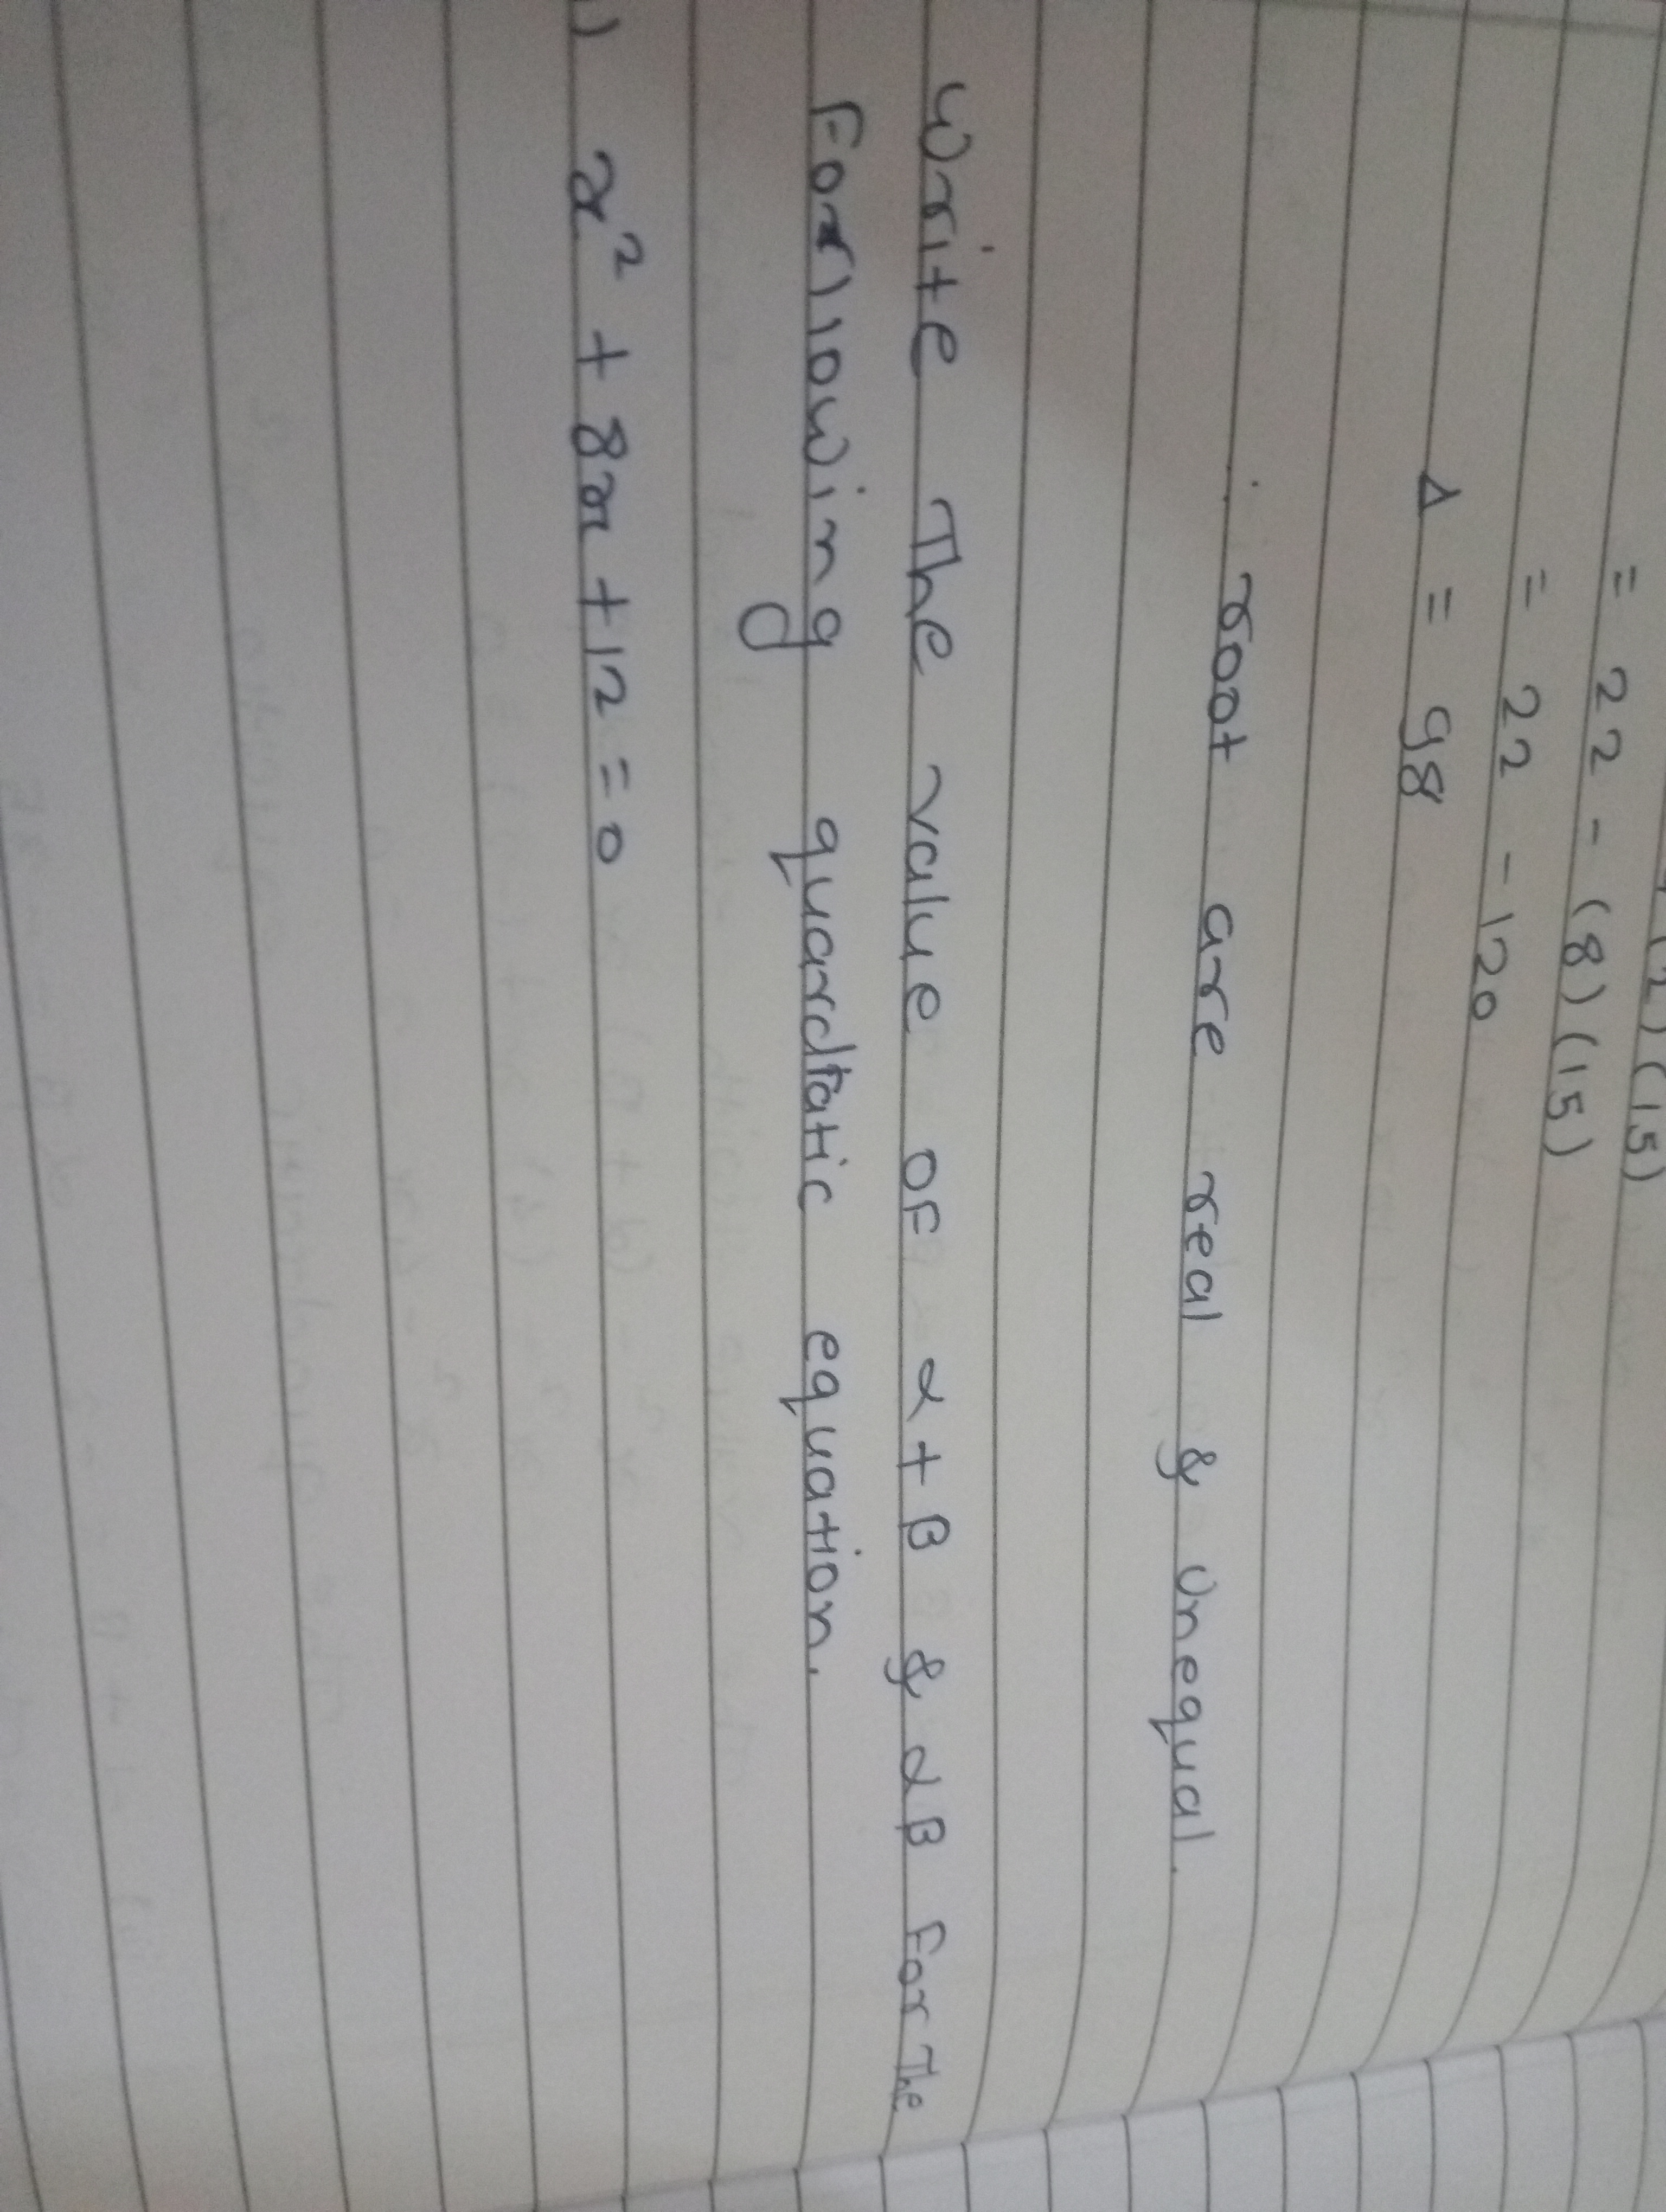 (2)(15)
= 22 - (8)(15)
= 22 - 120
Δ = 98
. root are real & unequal.
write The value OF α + β & αβ For The
Forllowing quardtatic equation.
) x² + 8x + 12 = 0